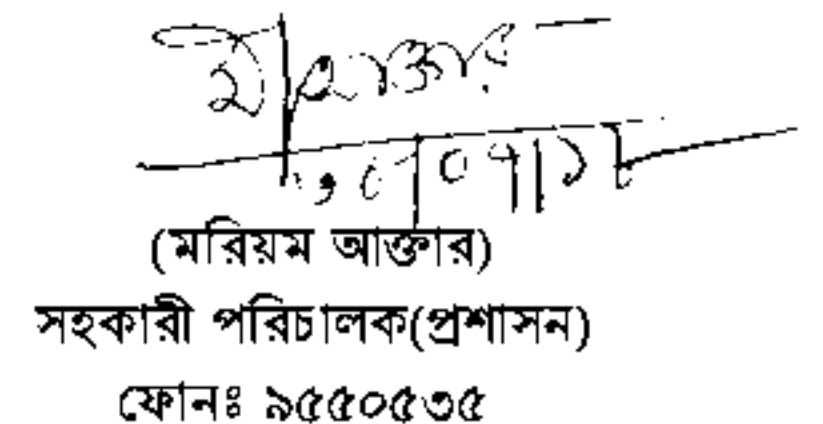 ৩০।০৭।১৮
(মরিয়ম আক্তার)
সহকারী পরিচালক(প্রশাসন)
ফোনঃ ৯৫৫০৫৩৫